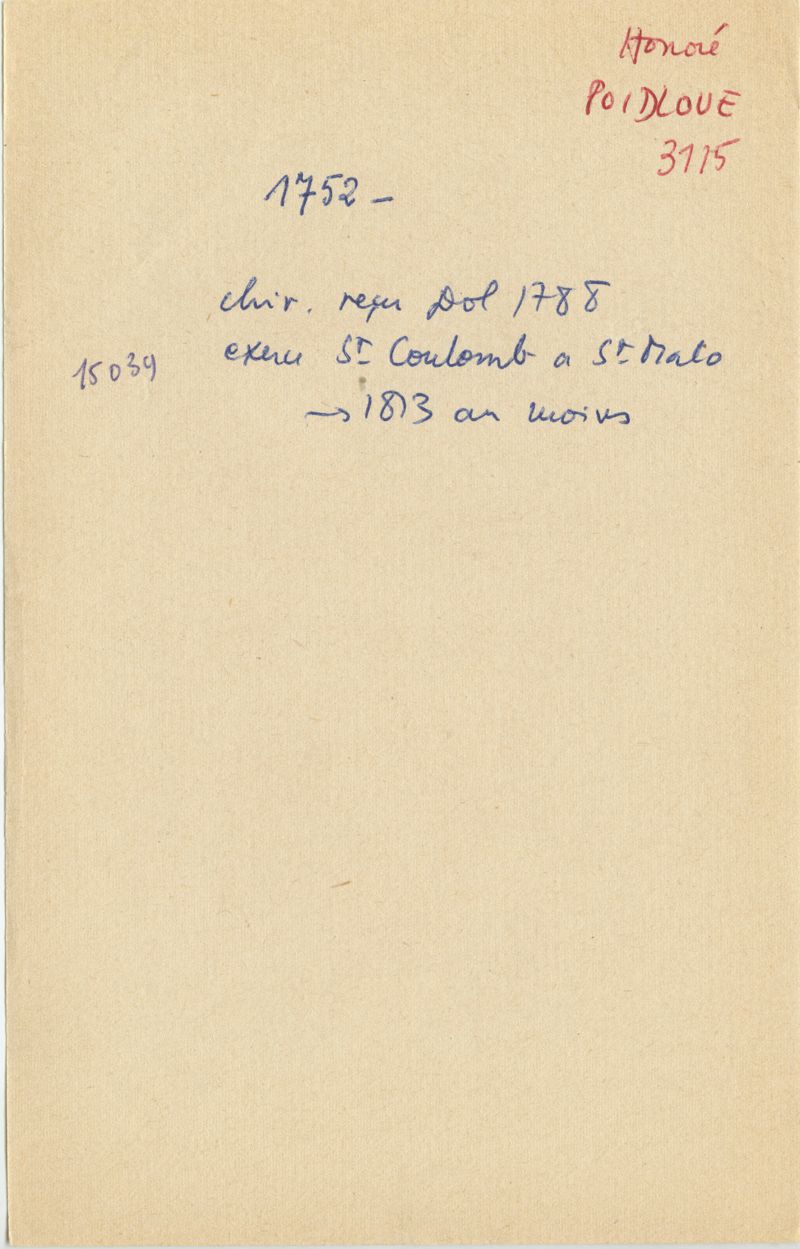 Honoré
POIDLOUE
3115
1752 -
chir. reçu Dol 1788
exerce St Coulomb a St Malo
15039
→ 1813 au moins